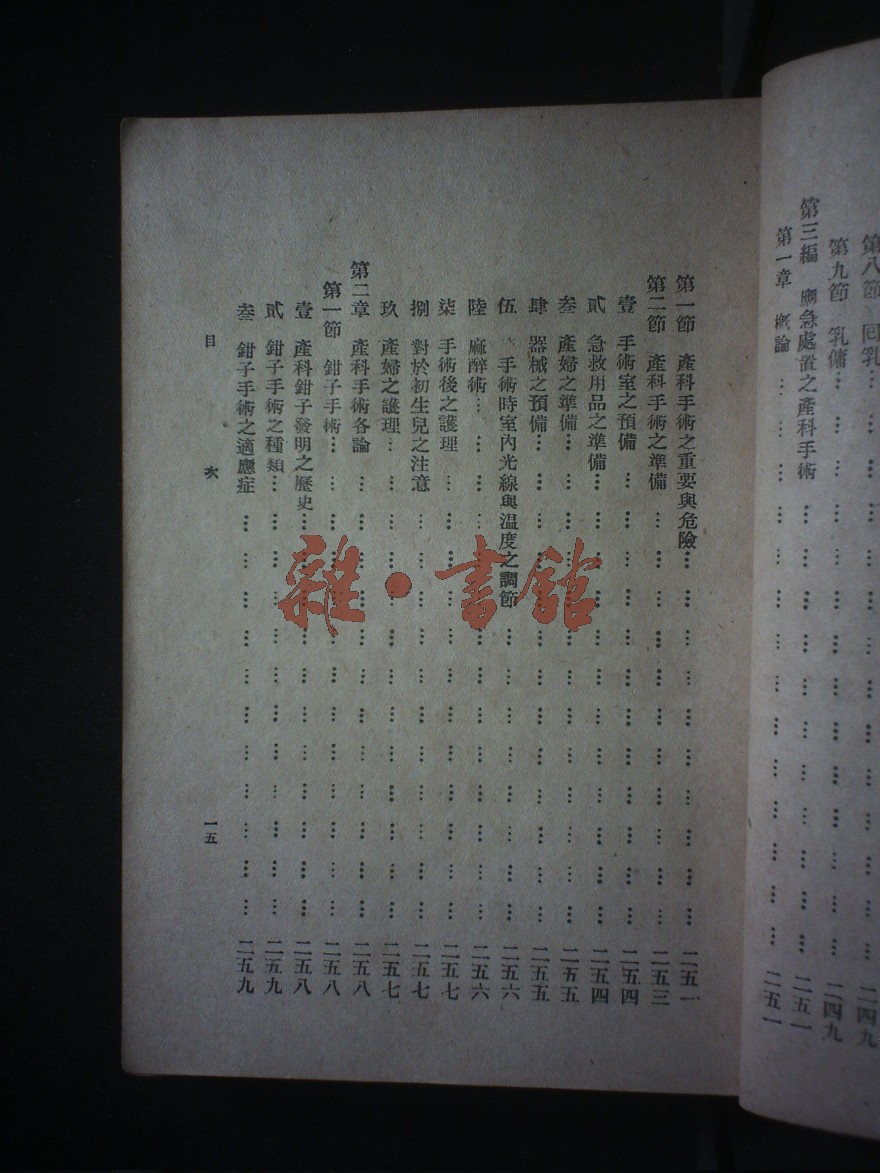 第八節 回乳… … … … … … … … … 二四九
第九節 乳傭… … … … … … … … … 二四九
第三編 應急處置之產科手術 … … … … … … … … 二五一
第一章 概論 … … … … … … … … … 二五一
第一節 產科手術之重要與危險… … … … … … … … 二五一
第二節 產科手術之準備 … … … … … … … … 二五三
壹 手術室之預備 … … … … … … … … 二五四
貳 急救用品之準備… … … … … … … … 二五四
叁 產婦之準備… … … … … … … … … 二五五
肆 器械之預備… … … … … … … … … 二五五
伍 手術時室內光線與溫度之調節 … … … … … … 二五六
陸 麻醉術… … … … … … … … … … 二五六
柒 手術後之護理 … … … … … … … … 二五七
捌 對於初生兒之注意 … … … … … … … … 二五七
玖 產婦之護理… … … … … … … … … 二五七
第二章 產科手術各論 … … … … … … … … 二五八
第一節 鉗子手術… … … … … … … … … 二五八
壹 產科鉗子發明之歷史… … … … … … … … 二五八
貳 鉗子手術之種類… … … … … … … … 二五九
叁 鉗子手術之適應症 … … … … … … … … 二五九
目 次 一五
雜·書館